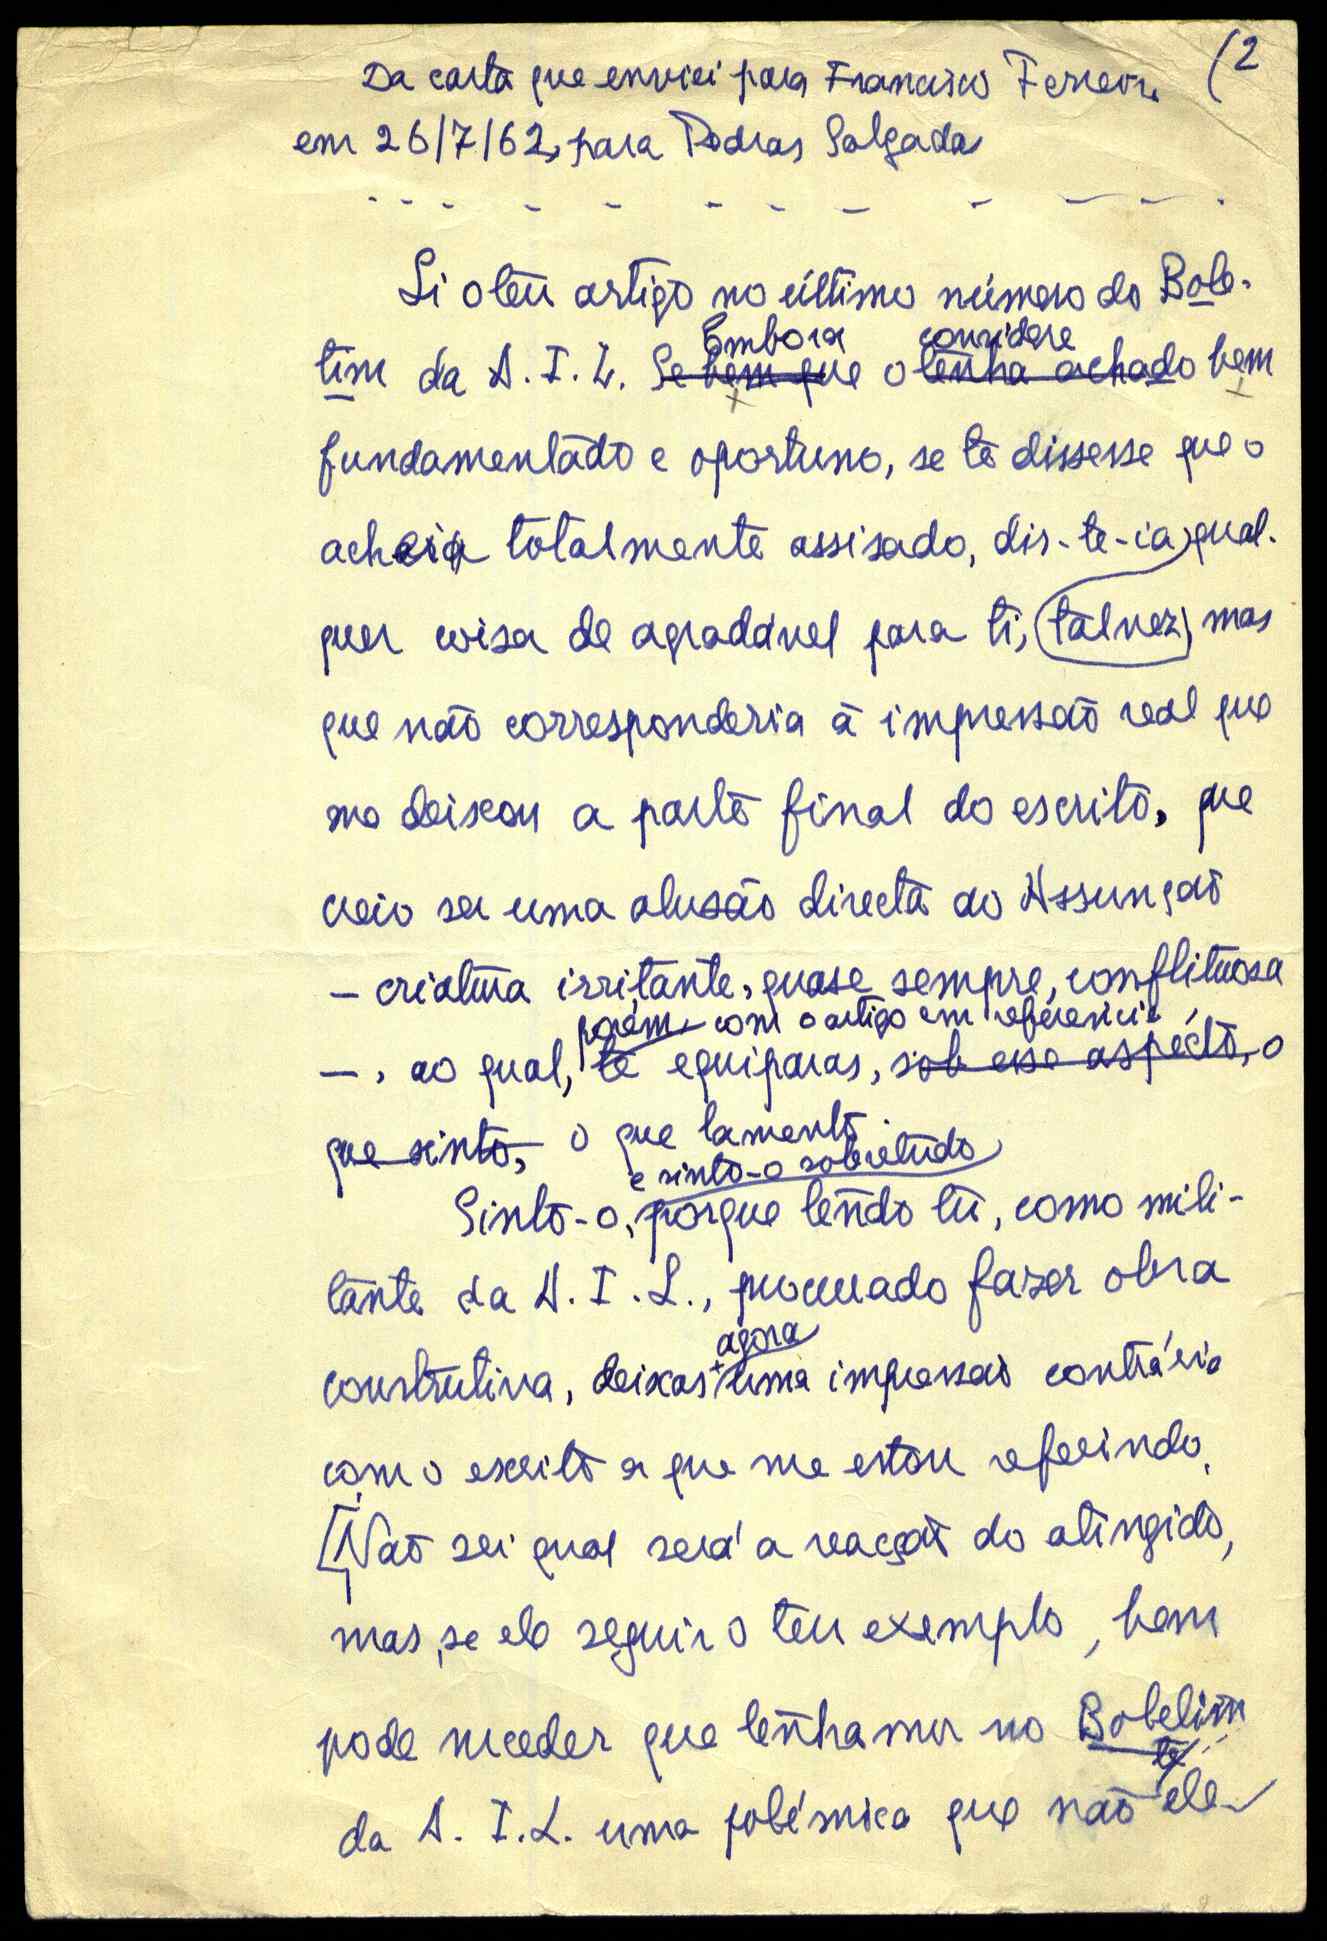 (2
Da carta que enviei para Francisco Ferreira
em 26/7/62, para Pedras Salgadas
- - - - - - - - - - - -
Li o teu artigo no último número do Bole-
Embora considere
tim da A. I. L. Se bem que o tenha achado bem
fundamentado e oportuno, se te dissesse que o
acheia totalmente assisado, dis-te-ia, qual-
quer coisa de agradável para ti, talvez, mas
que não corresponderia à impressão real que
me deixou a parte final do escrito, que
veio ser uma alusão directa ao Assunção
— criatura irritante, quase sempre, conflituosa
porém com o artigo em referência,
—, ao qual, te equiparas, sob esse aspécto, o
que sinto, o que lamento.
e sinto-o sobretudo
Sinto-o, porque tendo tu, como mili-
tante da A. I. L., procurado fazer obra
agora
construtiva, deixas + uma impressão contrária
com o escrito a que me estou referindo.
[Não sei qual será a reacção do atingido,
mas, se ele seguir o teu exemplo, bem
pode suceder que tenhamos no Boletim
te
da A. I. L. uma polémica que não ele-